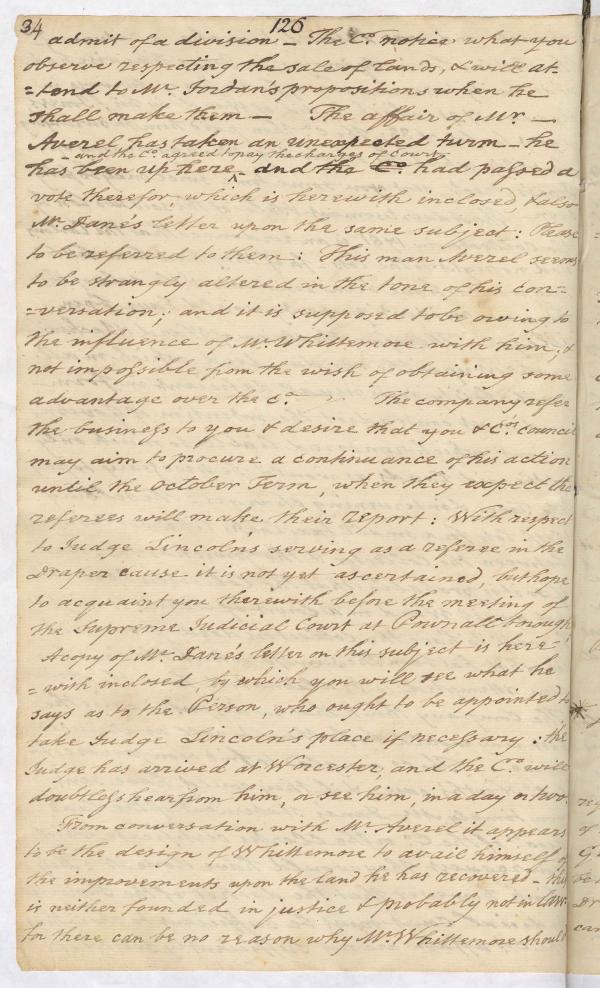 34 126
admit of a division – The Co. notice what you
observe respecting the sale of lands, & will at-
=tend to Mr. Jordan's propositions when he
shall make them – The affair of Mr. –
Averel has taken an unexpected turn – he
– and the Co. agreed to pay the charges of Court
has been up here ‸ and the Co. had passed a
vote therefor, which is herewith inclosed & also
Mr. Dane's letter upon the same subject: Please
to be referred to them: This man Averel seems
to be strangly altered in the tone of his con-
=versation; and it is supposed to be owing to
the influence of Mr. Whittemore with him, &
not impossible from the wish of obtaining some
advantage over the Co. The company refer
the business to you & desire that you & Cos. council
may aim to procure a continuance of his action
until the October Term, when they expect the
referees will make their report: With respect
to Judge Lincoln's serving as a referee in the
Draper cause it is not yet ascertained, but hope
to acquaint you therewith before the meeting of
the Supreme Judicial Court at Pownallborough
A copy of Mr. Dane's letter on this subject is here-
=with inclosed, by which you will see what he
says as to the Person, who ought to be appointed to
take Judge Lincoln's place if necessary: the
Judge has arrived at Worcester, and the Co. will
doubtless hear from him, or see him, in a day or two.
From conversation with Mr. Averel it appears
to be the design of Whittemore to avail himself of
the improvements upon the land he has recovered – this
is neither founded in justice & probably not in law –
for there can be no reason why Mr. Whittemore should